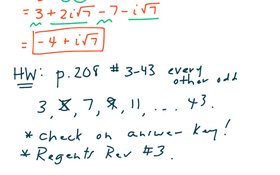 = 3 + 2i√7 - 7 - i√7
= -4 + i√7
HW: p. 208 # 3-43 every other odd
3, 5, 7, 9, 11, ... 43.
* Check on answer key!
* Regents Rev #3.